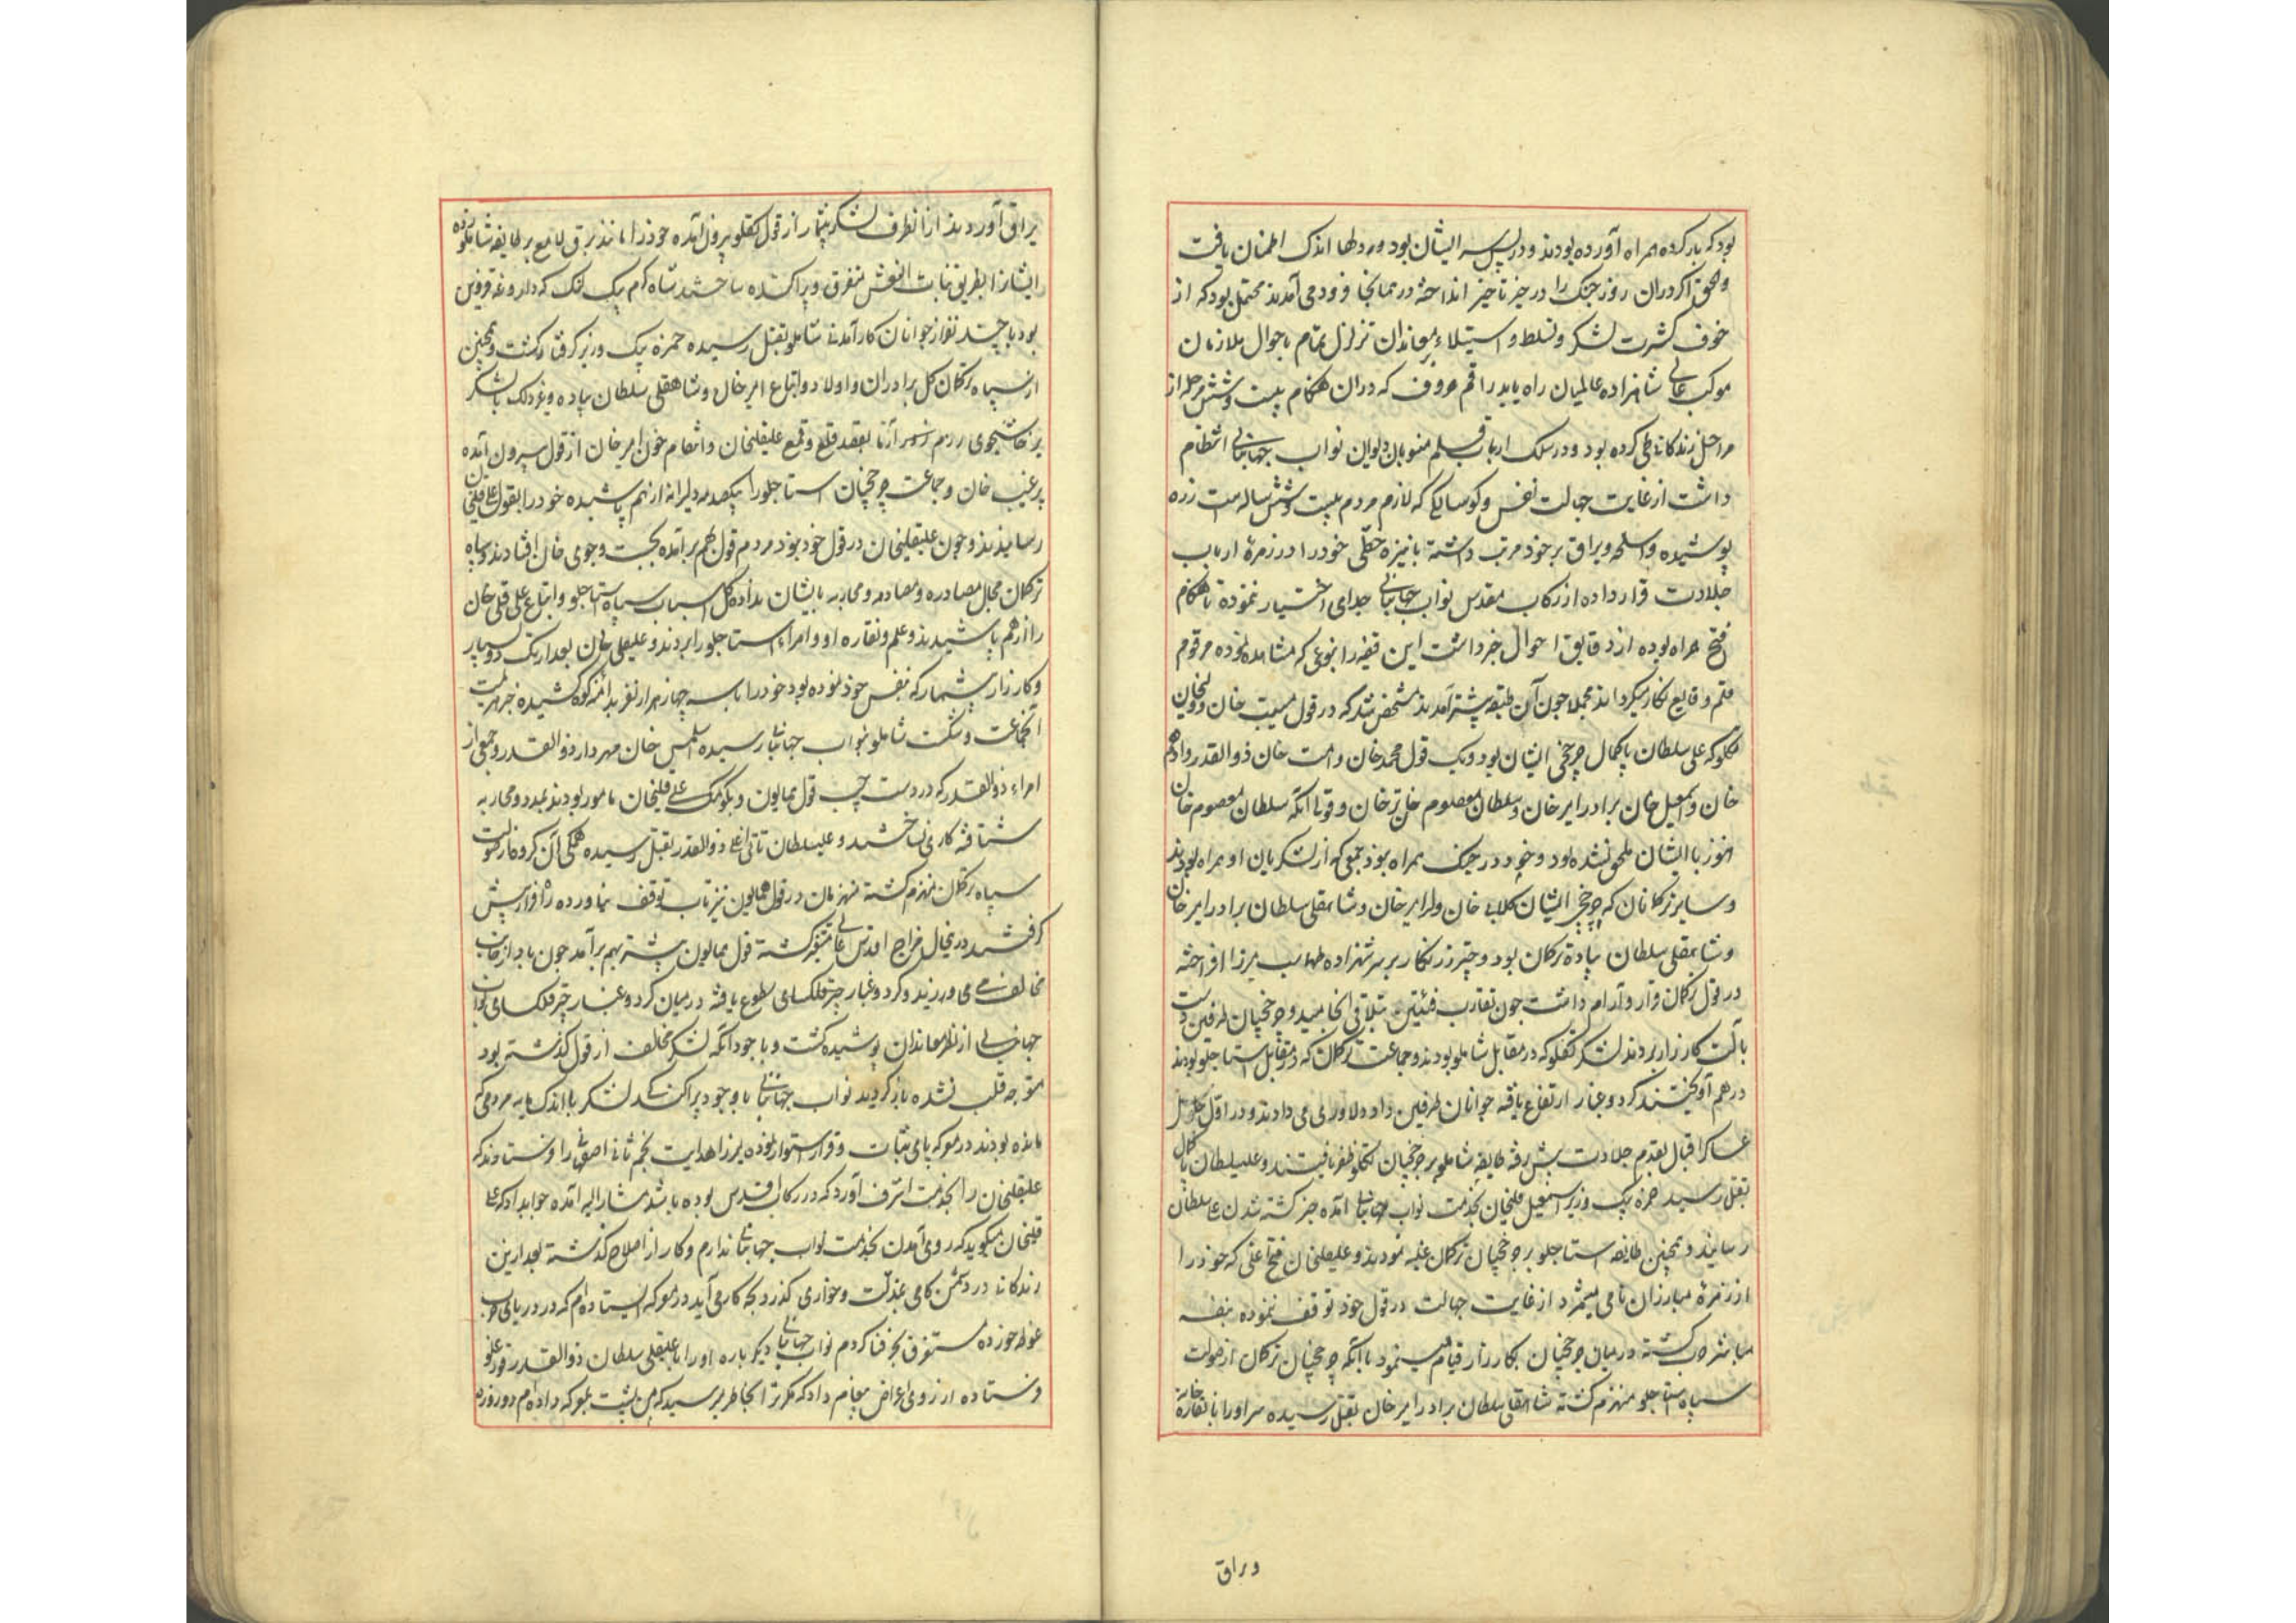 بود که بار کرده همراه آورده بودند و در پس سر ایشان بود و مردم را اندک اطمنان یافت
و الحق اگر در آن روز جنک را در حیز تاخیر انداخته در همانجا فرود می آمدند محتمل بود که از
خوف کثرت لشکر و تسلط و استیلاء معاندان تزلزل تمام باحوال ملازمان
موکب عالی شاهزاده عالمیان راه یابد راقم حروف که در آن هنکام بیست و شش مرحله از
مراحل زندکانی طی کرده بود و در سلک ارباب قلم منسوبان دیوان نواب جهانبانی انتظام
داشت از غایت جهالت نفس و کوسالکی که لازم مردم بیست و شش ساله است زره
پوشیده و اسلحه و یراق بر خود مرتب داشته با نیزه خطی خود را در زمره ارباب
جلادت قرار داده از رکاب مقدس نواب جهانبانی جدای اختیار ننموده تا هنکام
فتح همراه بوده از دقایق احوال خبر داشت این قضیه را بنوعی که مشاهده نموده مرقوم
قلم وقایع نکار میکرداند مجملا چون آن طبقه پیشتر آمدند مشخص شد که در قول مسیب خان و ولیخان
تکلو که علی سلطان پاکمال چرخچی ایشان بود و یک قول محمد خان و امت خان ذوالقدر و ادهم
خان و اسمعیل خان برادر امیر خان و سلطان معصوم خان ترخان و قوتا آنکه سلطان معصوم خان
هنوز با ایشان ملحق نشده بود و خود در جنک همراه نبود جمعی که از لشکریان او همراه بودند
و سایر ترکمانان که چرخچی ایشان کلابی خان ولد امیر خان و شاهقلی سلطان برادر امیر خان
و شاهقلی سلطان پیاده ترکمان بود و چتر زرنکار بر سر شهزاده طهماسب میرزا افراخته
در قول ترکمان قرار و آرام داشت چون تقارب فئتین بتلاقی انجامید و چرخچیان طرفین دست
بآلت کارزار بردند لشکر تکلو که در مقابل شاملو بودند و جماعت ترکمان که در مقابل استاجلو بودند
در هم آویختند کرد و غبار ارتفاع یافته جوانان طرفین داد دلاوری می دادند و در اول
عساکر اقبال بقدم جلادت پیش رفته طایفه شاملو بر چرخچیان تکلو ظفر یافتند و علیسلطان پاکمال
بقتل رسید حمزه بیک وزیر اسمعیل قلیخان بخدمت نواب جهانبانی آمده خبر کشته شدن علی سلطان
رسانید و همچنین طایفه استاجلو بر چرخچیان ترکمان غلبه نمودند و علیقلیخان فتح اغلی که خود را
از زمره مبارزان نامی میشمرد از غایت جهالت در قول خود توقف ننموده بنفسه
مباشر حرب کشته در میان چرخچیان بکارزار قیام مینمود با آنکه چرخچیان ترکمان از صولت
سپاه استاجلو منهزم کشته شاهقلی سلطان برادر امیر خان بقتل رسیده سر او را با نقاره خانه
و یراق
یراق آوردند از آنطرف لشکر بیشمار از قول تکلو بیرون آمده خود را مانند برق لامع بر طایفه شاملو زده
ایشانرا بطریق بنات النعش متفرق و پراکنده ساختند شاه کرم بیک لنک که داروغه قزوین
بود با چند نفر از جوانان کارآمدنی شاملو بقتل رسیده حمزه بیک وزیر کرفتار کشت و همچنین
از سپاه ترکمان کل برادران و اولاد و اتباع امیر خان و شاهقلی سلطان پیاده و غیر ذلک با لشکر
پرخاشجوی بقصد قلع و قمع علیقلیخان و انتقام خون امیر خان از قول بیرون آمده
پیر غیب خان و جماعت چرخچیان استاجلو را بیکصدمه دلیرانه از هم پاشیده خود را بقول علی قلیخان
رسانیدند و چون علیقلیخان در قول خود نبود مردم قول بهم برآمده بجست و جوی خان افتادند و سپاه
ترکمان مجال مصادره و مصادمه و محاربه بایشان نداده کل اسباب سپاه استاجلو و اتباع علی قلی خان
را از هم پاشیدند و علم و نقاره او و امراء استاجلو را بردند و علیقلی خان بعد از تک و دو بسیار
و کارزار بیشمار که بنفس خود نموده بود خود را با سه چهار هزار نفر بدامنه کوه کشیده خبر هزیمت
آنجماعت و شکست شاملو بنواب جهانبانی رسیده اسلمس خان مهردار ذوالقدر و جمعی از
امراء ذوالقدر که در دست چپ قول همایون و بکومک علی قلیخان مامور بودند بمدد و محاربه
شتافته کاری نساختند و علیسلطان تاتی اغلی ذوالقدر بقتل رسیده همکی آن کروه از صولت
سپاه ترکمان منهزم کشته منهزمان در قول همایون نیز تاب توقف نیاورده راه فرار پیش
کرفتند درینحال مزاج اقدس عالی متغیر کشته قول همایون پیشتر بهم برآمد چون باد از جانب
مخالف می ورزید و کرد و غبار چتر فلکسای سطوع یافته در میان کرد و غبار چتر فلکسای نواب
جهانبانی از نظر معاندان پوشیده کشت و با وجود آنکه لشکر مخالف از قول کذشته بود
متوجه قلب نشده باز کردیدند نواب جهانبانی با وجود پراکندکی لشکر با اندک مایه مردمی که
مانده بودند در معرکه پای ثبات و قرار استوار نموده میرزا هدایت نجم ثانی اصفهانی را فرستادند که
علیقلیخان را بخدمت اشرف آورد که در رکاب اقدس بوده باشد مشار الیه آمده جواب داد که علی
قلیخان میکوید که روی آمدن بخدمت نواب جهانبانی ندارم و کار از اصلاح کذشته بعد ازین
زندکانی در دشمن کامی بمذلت و خواری کذرد بچه کار می آید در معرکه ایستاده ام که در دریای حرب
غوطه خورده مستغرق بحر فنا کردم نواب جهانبانی دیکر باره او را با علیقلی سلطان ذوالقدر
فرستاده از روی اعراض پیغام داد که مکر ترا بخاطر میرسید که من پشت بمعرکه داده ام دو روزه